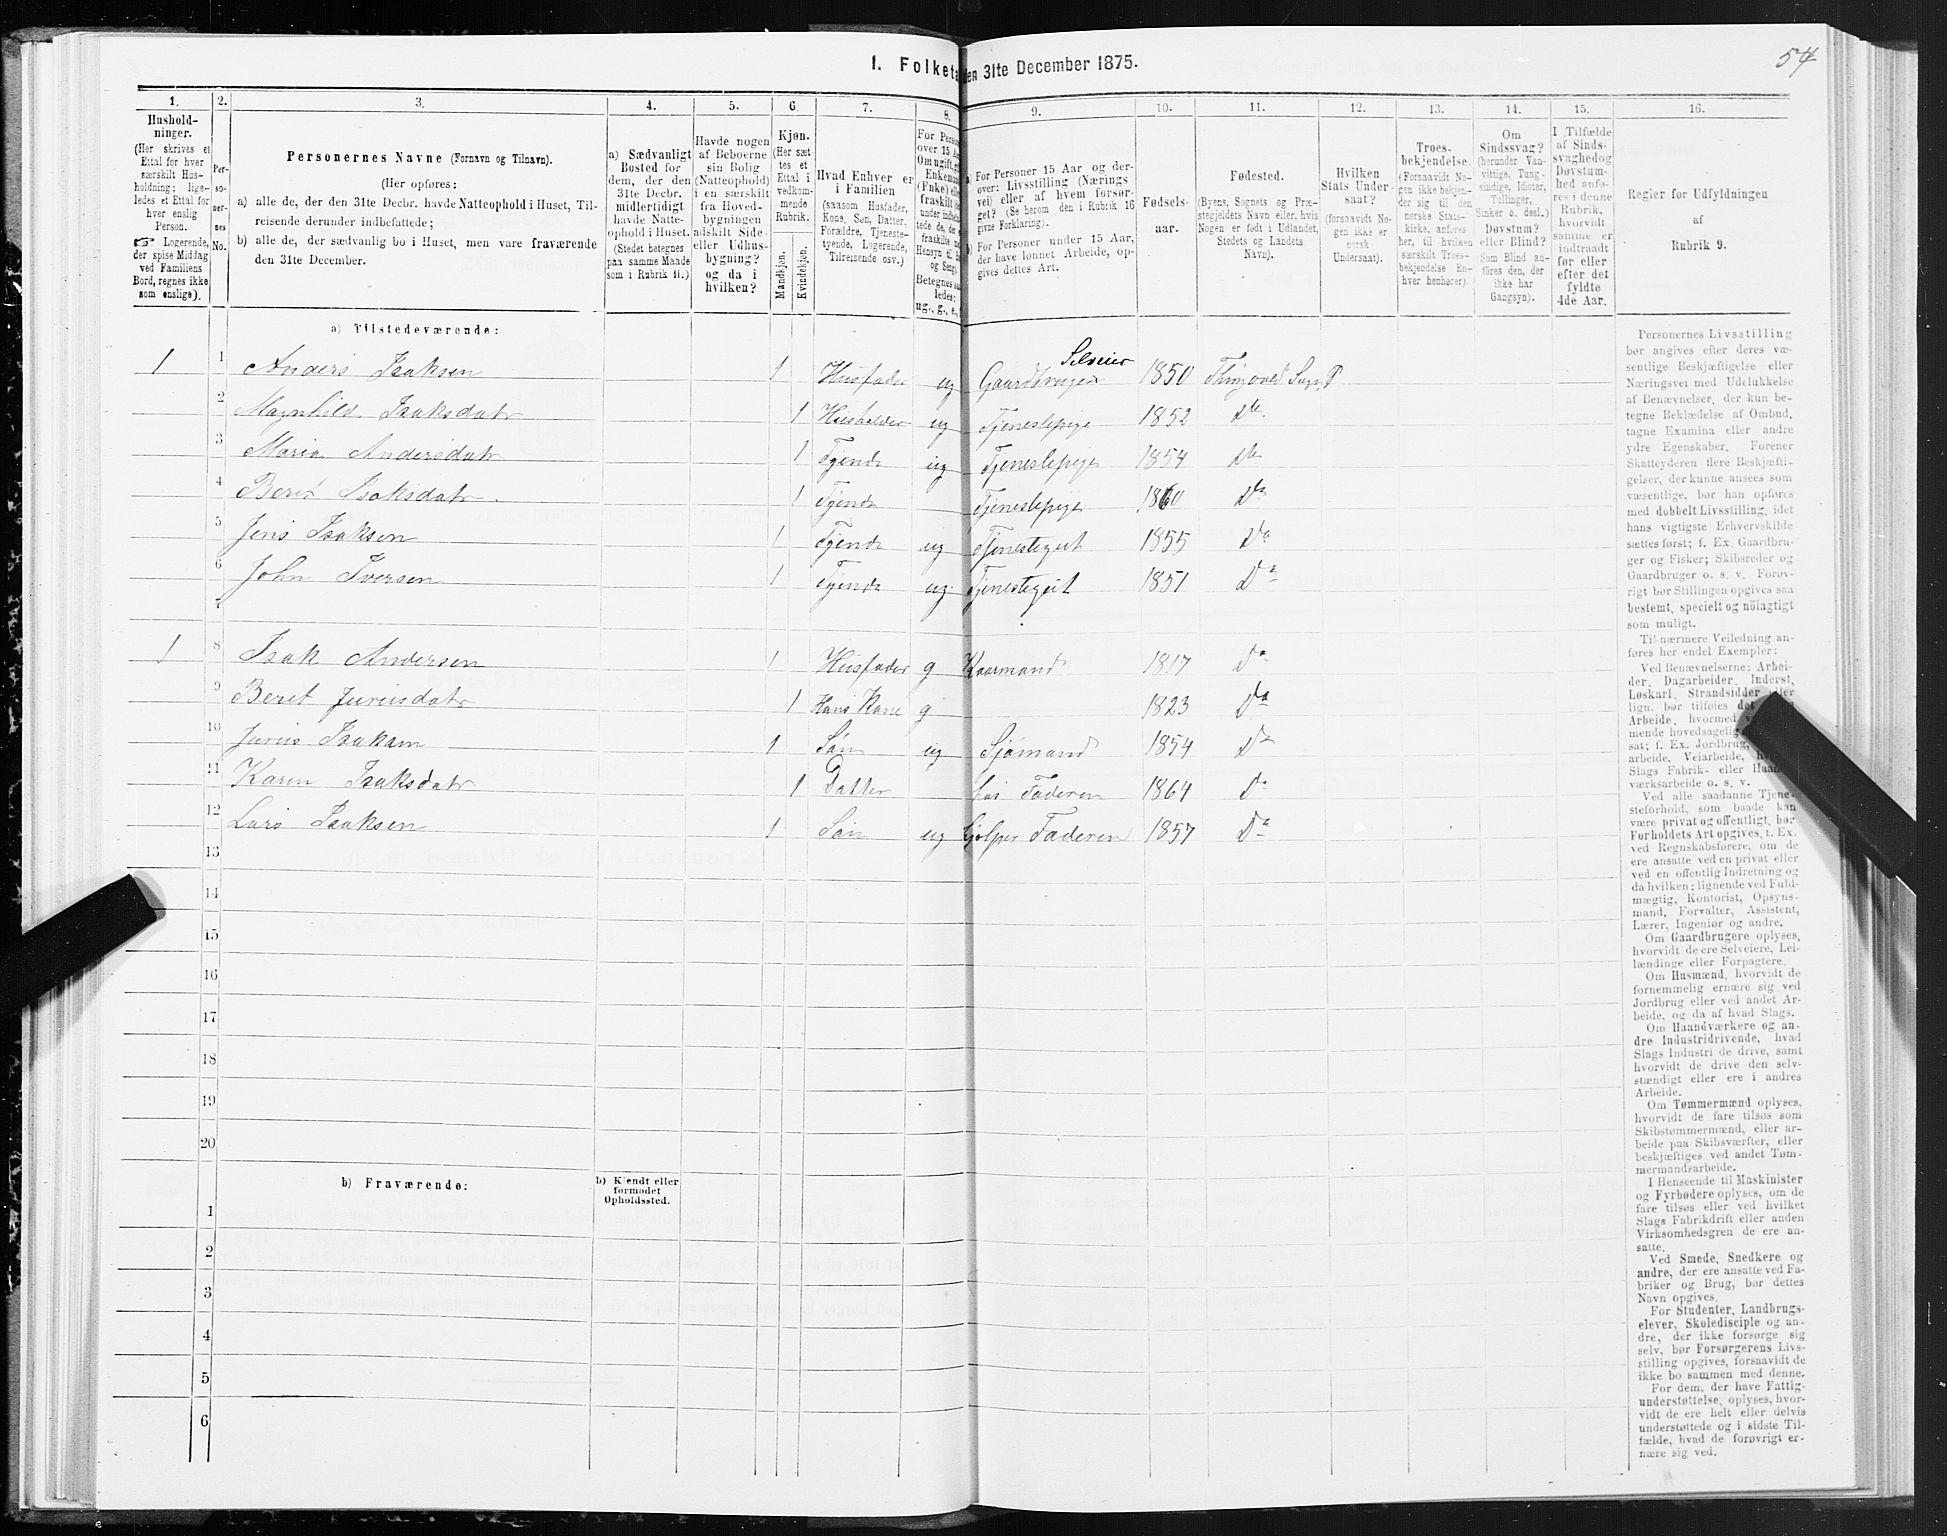 54
I. Folketæ
den 31te December 1875.
1. 2. 3. 4. 5. 6. 7. 8. 9. 10. 11. 12. 13. 14. 15. 16.
Hushold-
ninger.
(Her skrives et
Ettal for hver
særskilt Hus-
holdning; lige-
ledes et Ettal for
hver enslig
Person.
☞ Logerende,
der spise Middag
ved Familiens
Bord, regnes ikke
som enslige).
Per-
so-
ner-
nes
No.
Personernes Navne (Fornavn og Tilnavn).
(Her opføres:
a) alle de, der den 31te Decbr. havde Natteophold i Huset, Til-
reisende derunder indbefattede;
b) alle de, der sædvanlig bo i Huset, men vare fraværende
den 31te December.
a) Sædvanligt
Bosted for
dem, der den
31te Decbr.
midlertidigt
havde Natte-
ophold i Huset.
(Stedet betegnes
paa samme Maade
som i Rubrik 11.)
Havde nogen
af Beboerne
sin Bolig
(Natteophold)
i en særskilt
fra Hoved-
bygningen
adskilt Side-
eller Udhus-
bygning?
og da i
hvilken?
Kjøn.
(Her sæt-
tes et
Ettal i
vedkom-
mende
Rubrik.
Mandkjøn.
Kvindekjøn.
Hvad Enhver er
i Familien
(saasom Husfader,
Kone, Søn, Datter,
Forældre, Tjeneste-
tyende, Logerende,
Tilreisende osv.)
For Perso
over 15 Aa
Om ugift, gi
Enkeman
(Fnke) elle
fraskilt
ledes:
ug., g., e.,
a) For Personer 15 Aar og der-
over: Livsstilling (Nærings
vei) eller af hvem forsør-
get? (Se herom den i Rubrik 16
givne Forklaring).
b) For Personer under 15 Aar,
der have lønnet Arbeide, op-
gives dettes Art.
Fødsels-
aar.
Fødested.
(Byens, Sognets og Præ-
stegjeldets Navn eller, hvis
Nogen er født i Udlandet,
Stedets og Landets
Navn).
Hvilken
Stats Under-
saat?
(forsaavidt No-
gen ikke er
norsk
Undersaat).
Troes-
bekjendelse.
(Forsaavidt No-
gen ikke bekjen-
der sig til den
norske Stats-
kirke, anføres
her, til hvilken
særskilt Troes-
bekjendelse En-
hver henhører).
Om
Sindssvag?
(herunder Van-
vittige, Tung-
sindige, Idioter,
Tullinger,
Sinker o. desl.)
Døvstum?
eller Blind?
Som Blind an-
føres den, der
ikke har
Gangsyn).
I Tilfælde
af Sinds-
svaghed og
Døvstum-
hed anfø-
res i denne
Rubrik,
hvorvidt
samme er
indtraadt
før eller
efter det
fyldte
4de Aar.
Regler for Udfyldningen
af
Rubrik 9.
a) Tilstedeværende:
1 1 Anders Isaksen 1 Husfader ug Gaardbruger Selveier 1850 Thingvold Sogn P
2 Magnhild Isaksdatr 1 Husholder ug Tjenestepige 1852 Do
3 Maria Andersdatr 1 Tyende ug Tjenestepige 1854 do
4 Beret Isaksdatr 1 Tyende Tjenestepige 1860 Do
5 Jens Isaksen 1 Tyende ug Tjenestegut 1855 Do
6 John Iversen 1 Tyende ug Tjenestegut 1851 Do
7
1 8 Isak Andersen 1 Husfader g Kaarmand 1817 Do
9 Beret Juriisdatr 1 Hans Kone g 1823 Do
10 Juriis Isaksen 1 Søn ug Sjømand 1854 Do
11 Karen Isaksdatr 1 Datter hos Faderen 1864 Do
12 Lars Isaksen 1 Søn ug hjelper Faderen 1857 Do
13
14
15
16
17
18
19
20
b) Fraværende:
b) Kjendt eller
formodet
Opholdssted.
1
2
3
4
5
6
Personernes Livsstilling
bør angives efter deres væ-
sentlige Beskjæftigelse eller
Næringsvei med Udelukkelse
af Benævnelser, der kun be-
tegne Beklædelse af Ombud,
tagne Examina eller andre
ydre Egenskaber. Forener
Skatteyderen flere Beskjæfti-
gelser, der kunne ansees som
væsentlige, bør han opføres
med dobbelt Livsstilling, idet
hans vigtigste Erhvervskilde
sættes først; f. Ex. Gaardbru-
ger og Fisker; Skibsreder og
Gaardbruger o. s. v. Forøv-
rigt bør Stillingen opgives saa
bestemt, specielt og nöiagtigt
som muligt.
Til nærmere Veiledning an-
føres her endel Exempler:
Ved Benævnelserne: Arbei-
der, Dagarbeider, Inderst,
Løskarl, Strandsidder eller
lign. bør tilføies det
Arbeide, hvormed
mende hovedsagelig
sat; f. Ex. Jordbrug,
arbeide, Veiarbeide,
Slags Fabrik- eller Haand-
værksarbeide o. s. v.
Ved alle saadanne Tjene-
steforhold, som baade kan
være privat og offentligt, bør
Forholdets Art opgives, t. Ex.
ved Regnskabsførere, om de
ere ansatte ved en privat eller
ved en offentlig Indretning og
da hvilken; lignende ved Fuld-
mægtig, Kontorist, Opsyns-
mand, Forvalter, Assistent,
Lærer, Ingeniør og andre.
Om Gaardbrugere oplyses,
hvorvidt de ere Selveiere, Lei-
lændinge eller Forpagtere.
Om Husmænd, hvorvidt de
fornemmelig ernære sig ved
Jordbrug eller ved andet Ar-
beide, og da af hvad Slags.
Om Haandværkere og an-
dre Industridrivende, hvad
Slags Industri de drive, samt
hvorvidt de drive den selv-
stændigt eller ere i andres
Arbeide.
Om Tømmermænd oplyses,
hvorvidt de fare tilsøs som
Skibstømmermænd, eller ar-
beide paa Skibsværfter, eller
beskjæftiges ved andet Tøm-
mermandsarbeide.
I Henseende til Maskinister
og Fyrbødere oplyses, om de
fare tilsøs eller ved hvilket
Slags Fabrikdrift eller anden
Virksomhedsgren de ere an-
satte.
Ved Smede, Snedkere og
andre, der ere ansatte ved Fa-
briker og Brug, bør dettes
Navn opgives.
For Studenter, Landbrugs-
elever, Skoledisciple og an-
dre, der ikke forsørge sig
selv, bør Forsørgerens Livs-
stilling opgives, forsaavidt de
ikke bo sammen med denne.
For dem, der have Fattig-
understøttelse, oplyses, hvor-
vidt de ere helt eller delvis
understøttede og i sidste Til-
fælde, hvad de forøvrigt er-
nære sig ved.